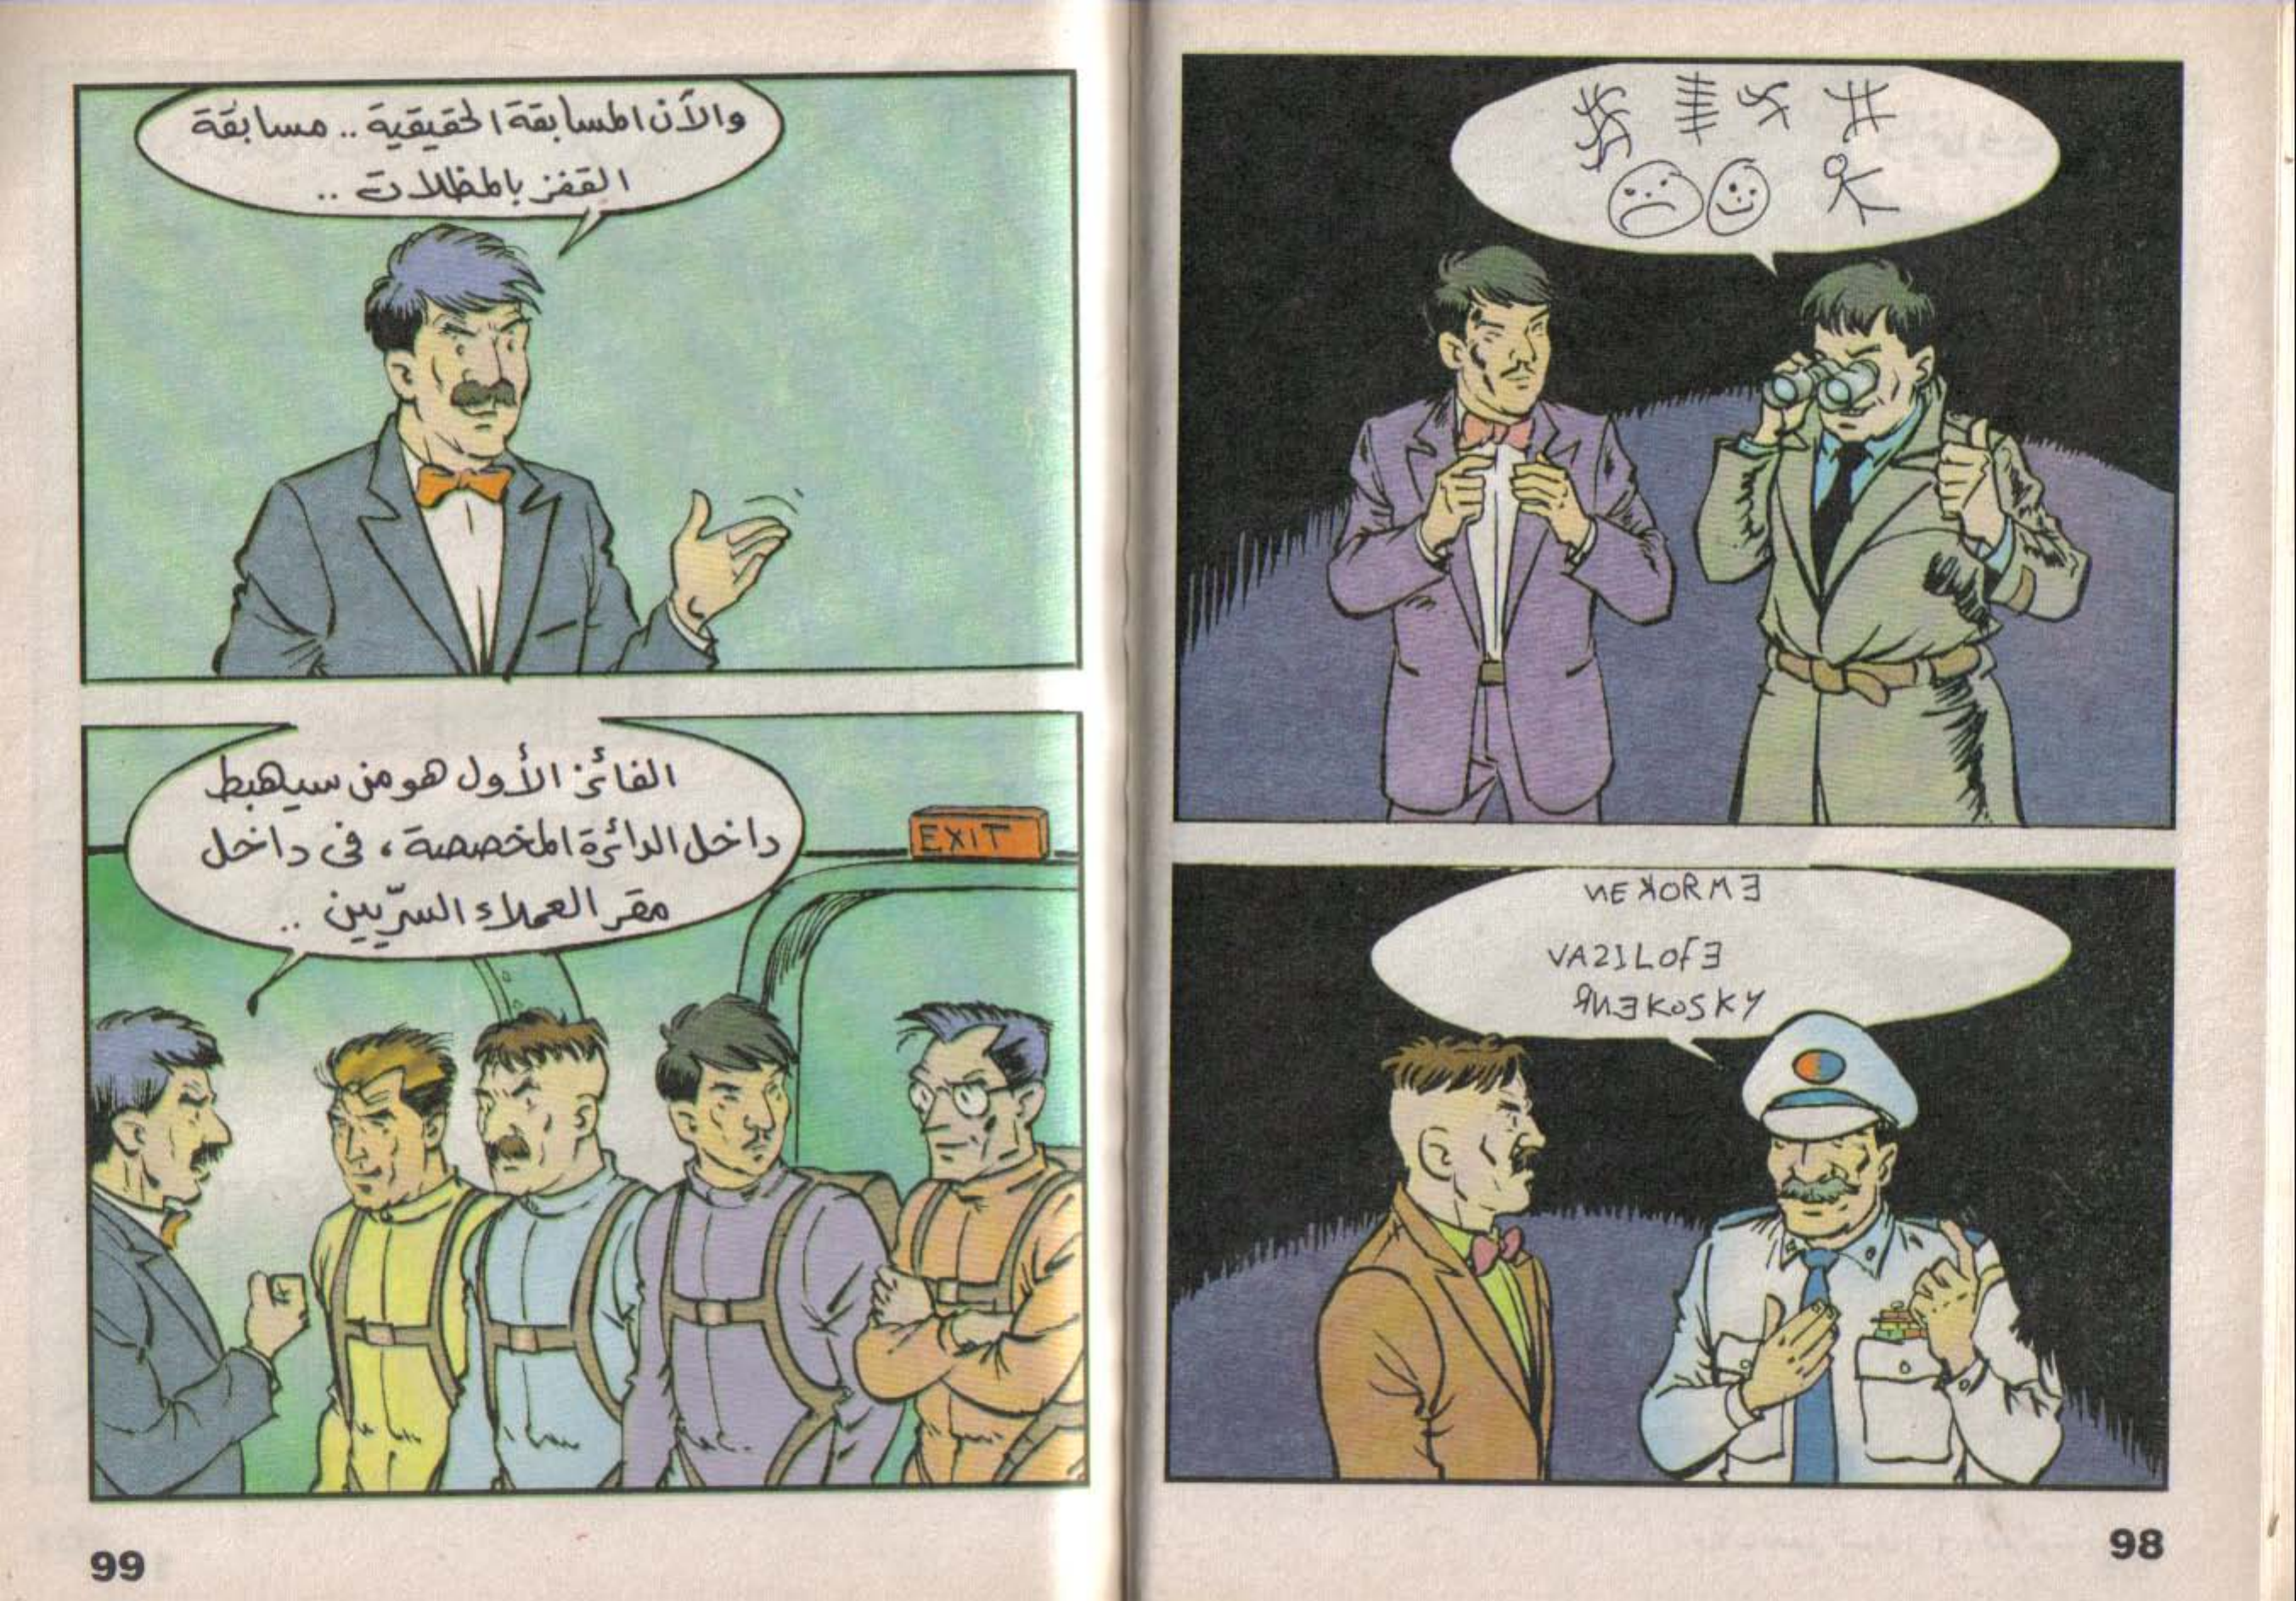 ИE ꓘORM Ǝ
VA2ILOFƎ
ЯИƎKOSKY
98
والآن المسابقة الحقيقية .. مسابقة
القفز بالمظلات ..
الفائز الأول هو من سيهبط
داخل الدائرة المخصصة ، فى داخل
مقر العملاء السرّيين ..
EXIT
99